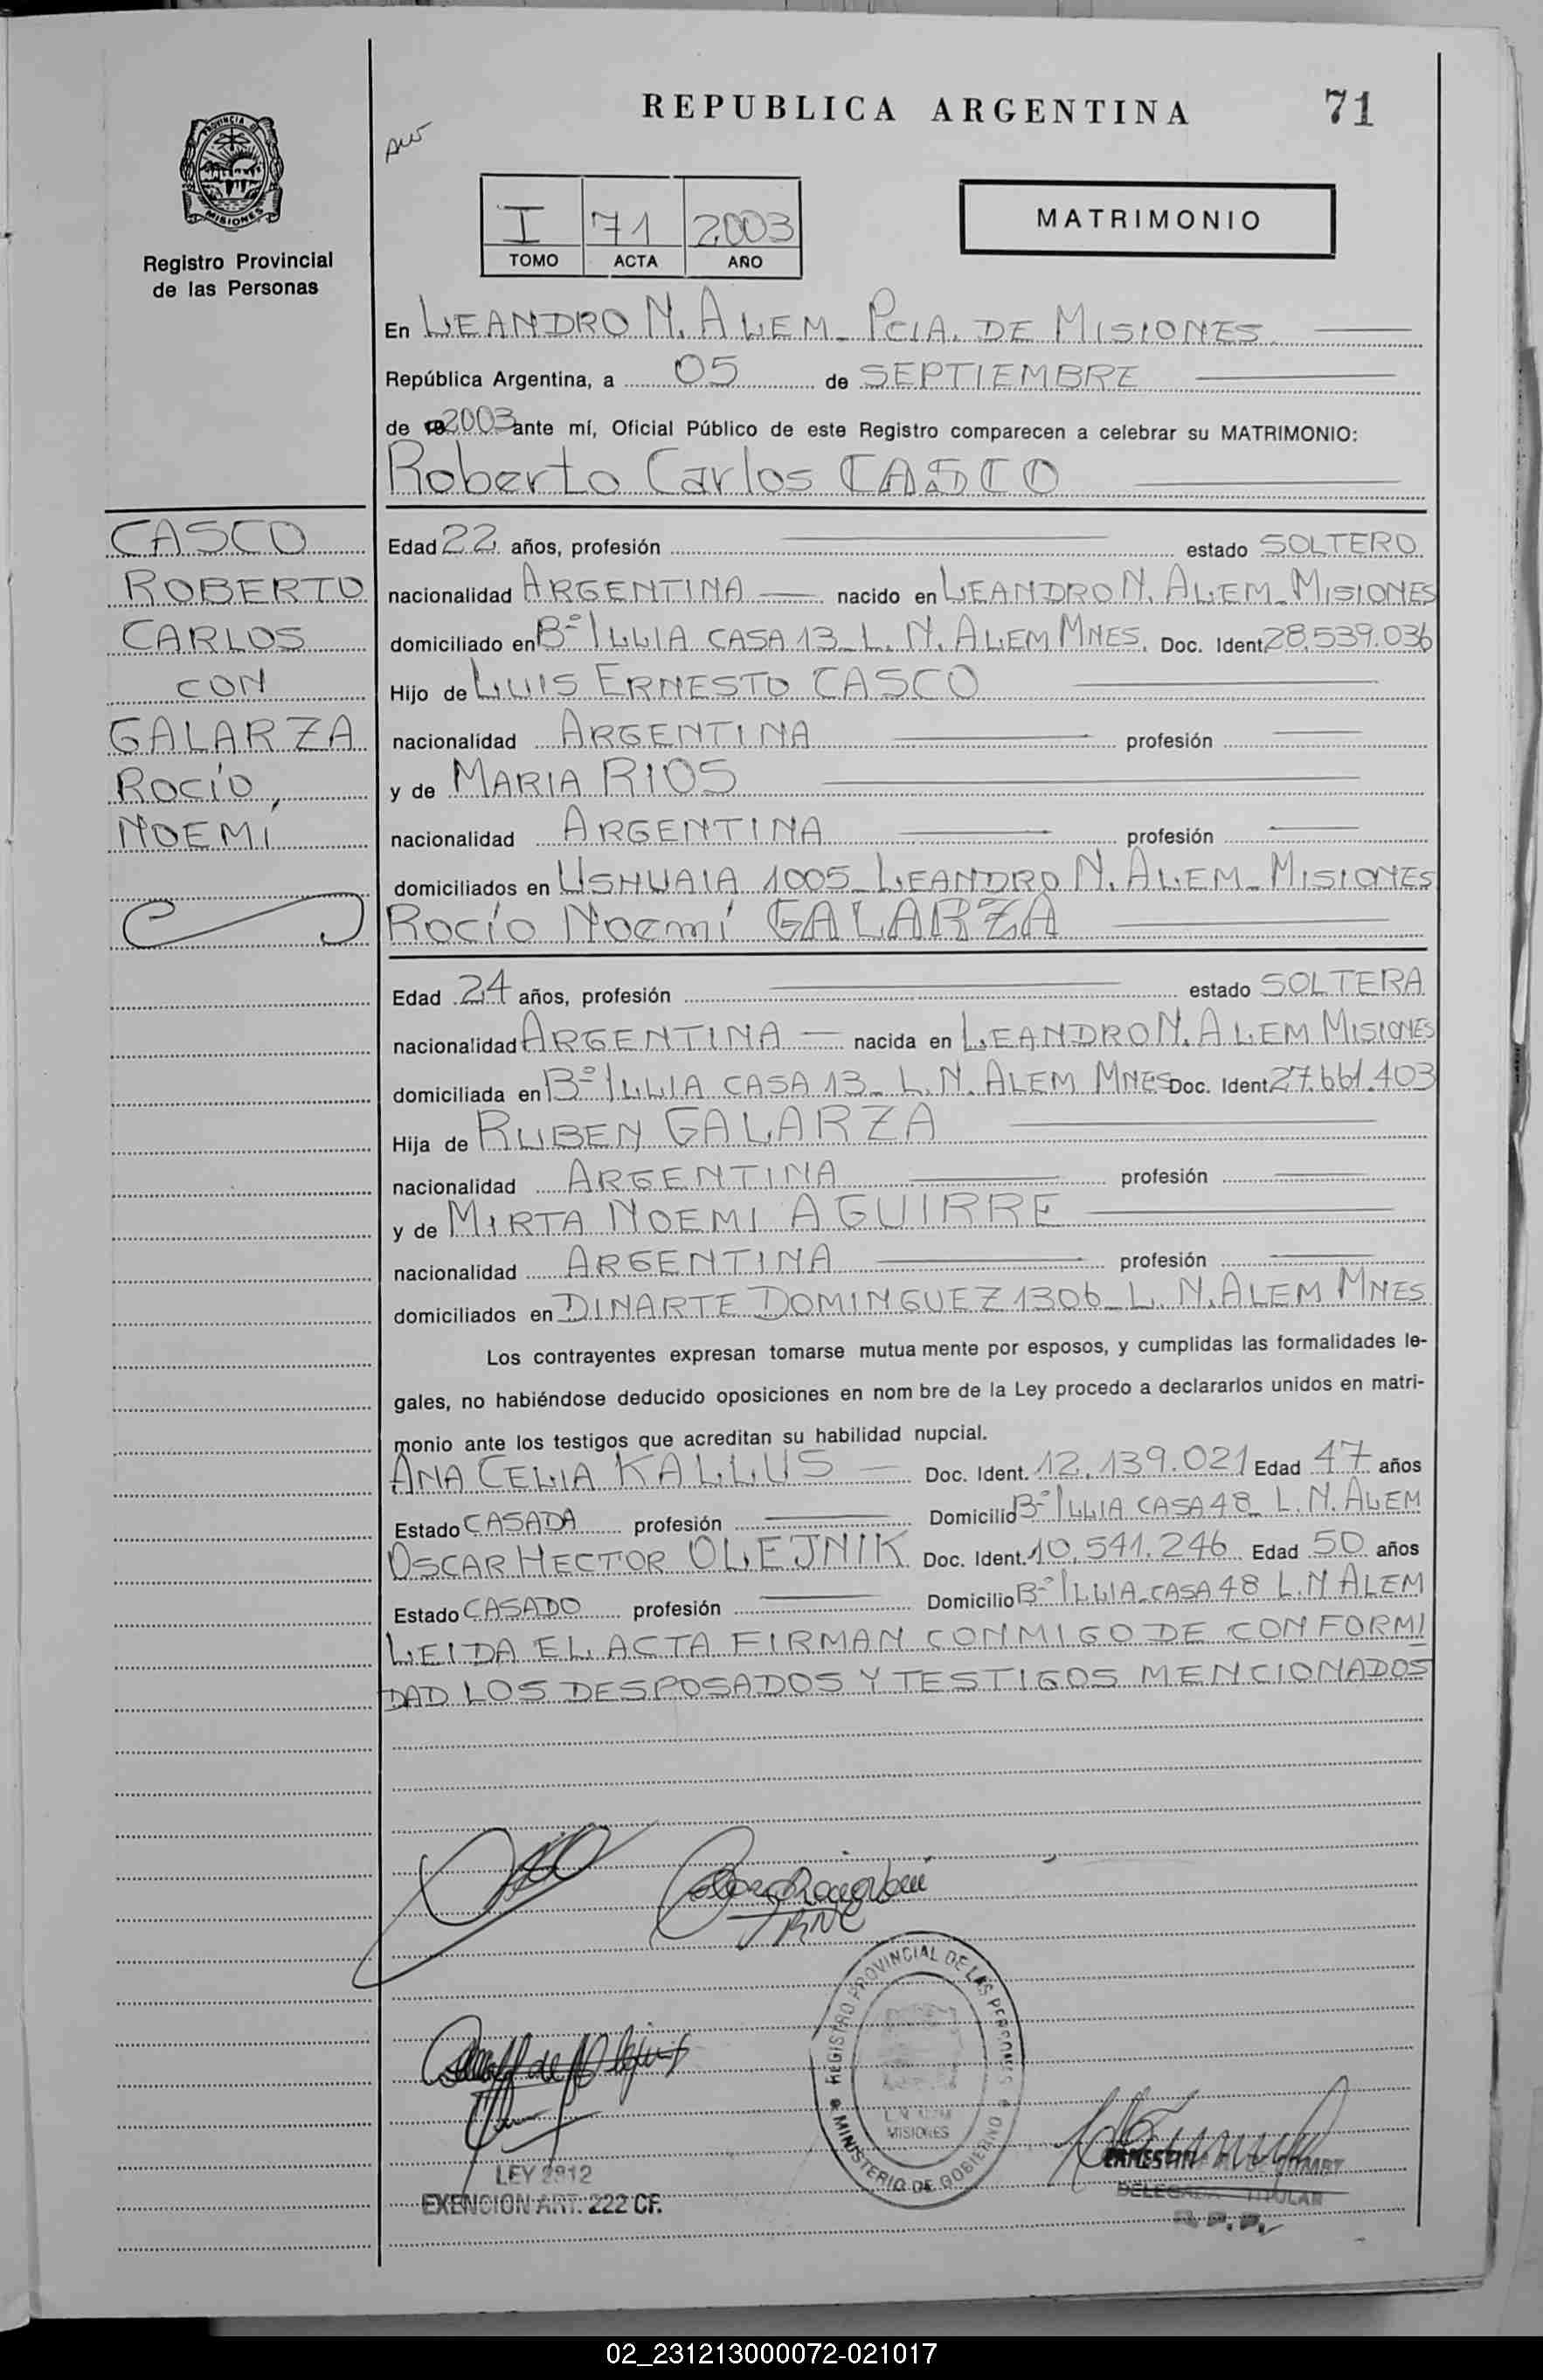 REPUBLICA ARGENTINA 71
PROVINCIA DE
MISIONES
Registro Provincial
de las Personas
I 71 2003
TOMO ACTA AÑO
MATRIMONIO
En LEANDRO N. ALEM - PCIA. DE MISIONES
República Argentina, a 05 de SEPTIEMBRE
de 2003 ante mí, Oficial Público de este Registro comparecen a celebrar su MATRIMONIO:
Roberto Carlos CASCO
CASCO
ROBERTO
CARLOS
CON
GALARZA
ROCÍO,
NOEMÍ
Edad 22 años, profesión estado SOLTERO
nacionalidad ARGENTINA nacido en LEANDRO N. ALEM - MISIONES
domiciliado en Bº ILLIA CASA 13 - L. N. ALEM MNES. Doc. Ident. 28.539.036
Hijo de LUIS ERNESTO CASCO
nacionalidad ARGENTINA profesión
y de MARIA RIOS
nacionalidad ARGENTINA profesión
domiciliados en USHUAIA 1005 - LEANDRO N. ALEM - MISIONES
Rocío Noemí GALARZA
Edad 24 años, profesión estado SOLTERA
nacionalidad ARGENTINA nacida en LEANDRO N. ALEM MISIONES
domiciliada en Bº ILLIA CASA 13 - L. N. ALEM MNES Doc. Ident. 27.661.403
Hija de RUBEN GALARZA
nacionalidad ARGENTINA profesión
y de MIRTA NOEMI AGUIRRE
nacionalidad ARGENTINA profesión
domiciliados en DINARTE DOMINGUEZ 1306 - L. N. ALEM MNES
Los contrayentes expresan tomarse mutua mente por esposos, y cumplidas las formalidades le-
gales, no habiéndose deducido oposiciones en nom bre de la Ley procedo a declararlos unidos en matri-
monio ante los testigos que acreditan su habilidad nupcial.
ANA CELIA KALLUS Doc. Ident. 12.139.021 Edad 47 años
Estado CASADA profesión Domicilio Bº ILLIA CASA 48 - L. N. ALEM
OSCAR HECTOR OLEJNIK Doc. Ident. 10.541.246 Edad 50 años
Estado CASADO profesión Domicilio Bº ILLIA - CASA 48 L. N ALEM
LEIDA EL ACTA FIRMAN CONMIGO DE CONFORMI
DAD LOS DESPOSADOS Y TESTIGOS MENCIONADOS
REGISTRO PROVINCIAL DE LAS PERSONAS
MINISTERIO DE GOBIERNO
L.N. ALEM
MISIONES
LEY 2912
EXENCION ART. 222 CF.
DELEGADA TITULAR
R. P. P.
02_231213000072-021017